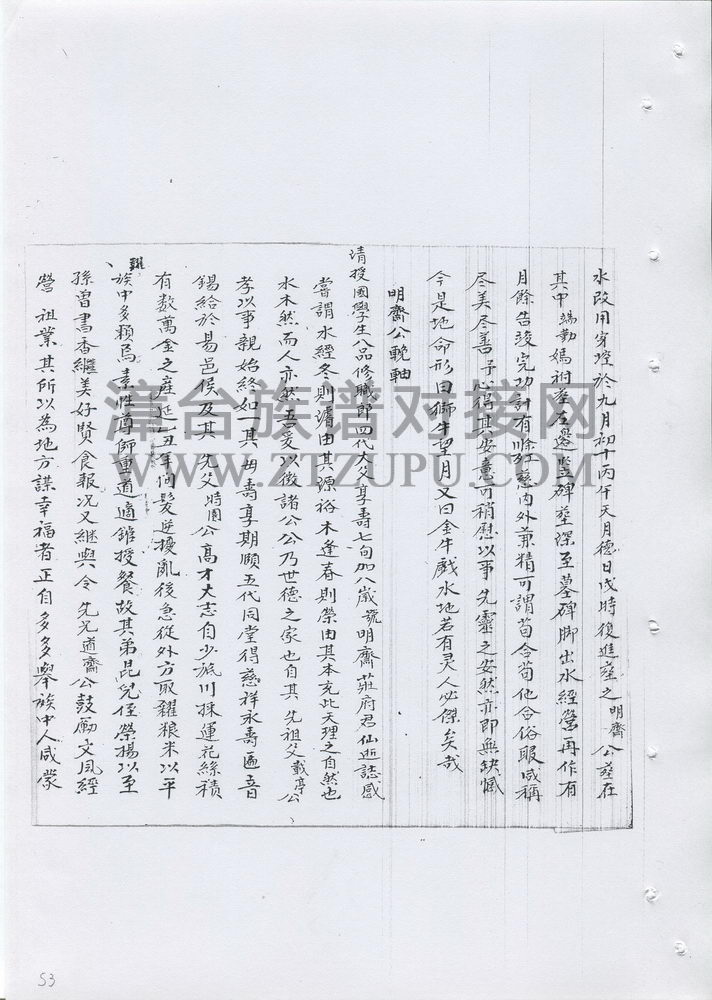 水改用穿壙於九月初十丙午天月德日戌時復進塋之明齋公塋在
其中端勤媽祔塋左邊豎碑塋深至墓碑脚出水經營再作有
月餘告竣完功計有除內外兼精可謂苟合苟他合俗眼咸稱
尽美尽善予心得其安意可稍慰以事先靈之安然亦即無缺憾
今是地命形曰獅牛望月又曰金牛戲水地若有灵人必傑矣哉
明齋公輓軸
清授國學生八品修職郎四代大父享壽七旬加八歲號明齋莊府君仙逝誌感
嘗謂水經冬則濇由其源裕木逢春則榮由其本充此天理之自然也
水木然而人亦然吾爰以徵諸公公乃世德之家也自其先祖父載亭公
孝以事親始終如一其母壽享期頤五代同堂得慈祥永壽匾音
錫給於易邑侯及其先父時園公高才大志自少派川採運花絲積
有数萬金之產延丑年向髮逆擾亂後急從外方取糶粮米以平
糶族中多賴焉素性尊師重道適錐授餐故其弟昆兒侄榮揚以至
孫曾書香繼美好賢食報况又繼與令先兄道齋公鼓勵文風經
營祖業其所以為地方謀幸福者正自多多舉族中人咸蒙
53
漳台族谱对接网
WWW.ZTZUPU.COM